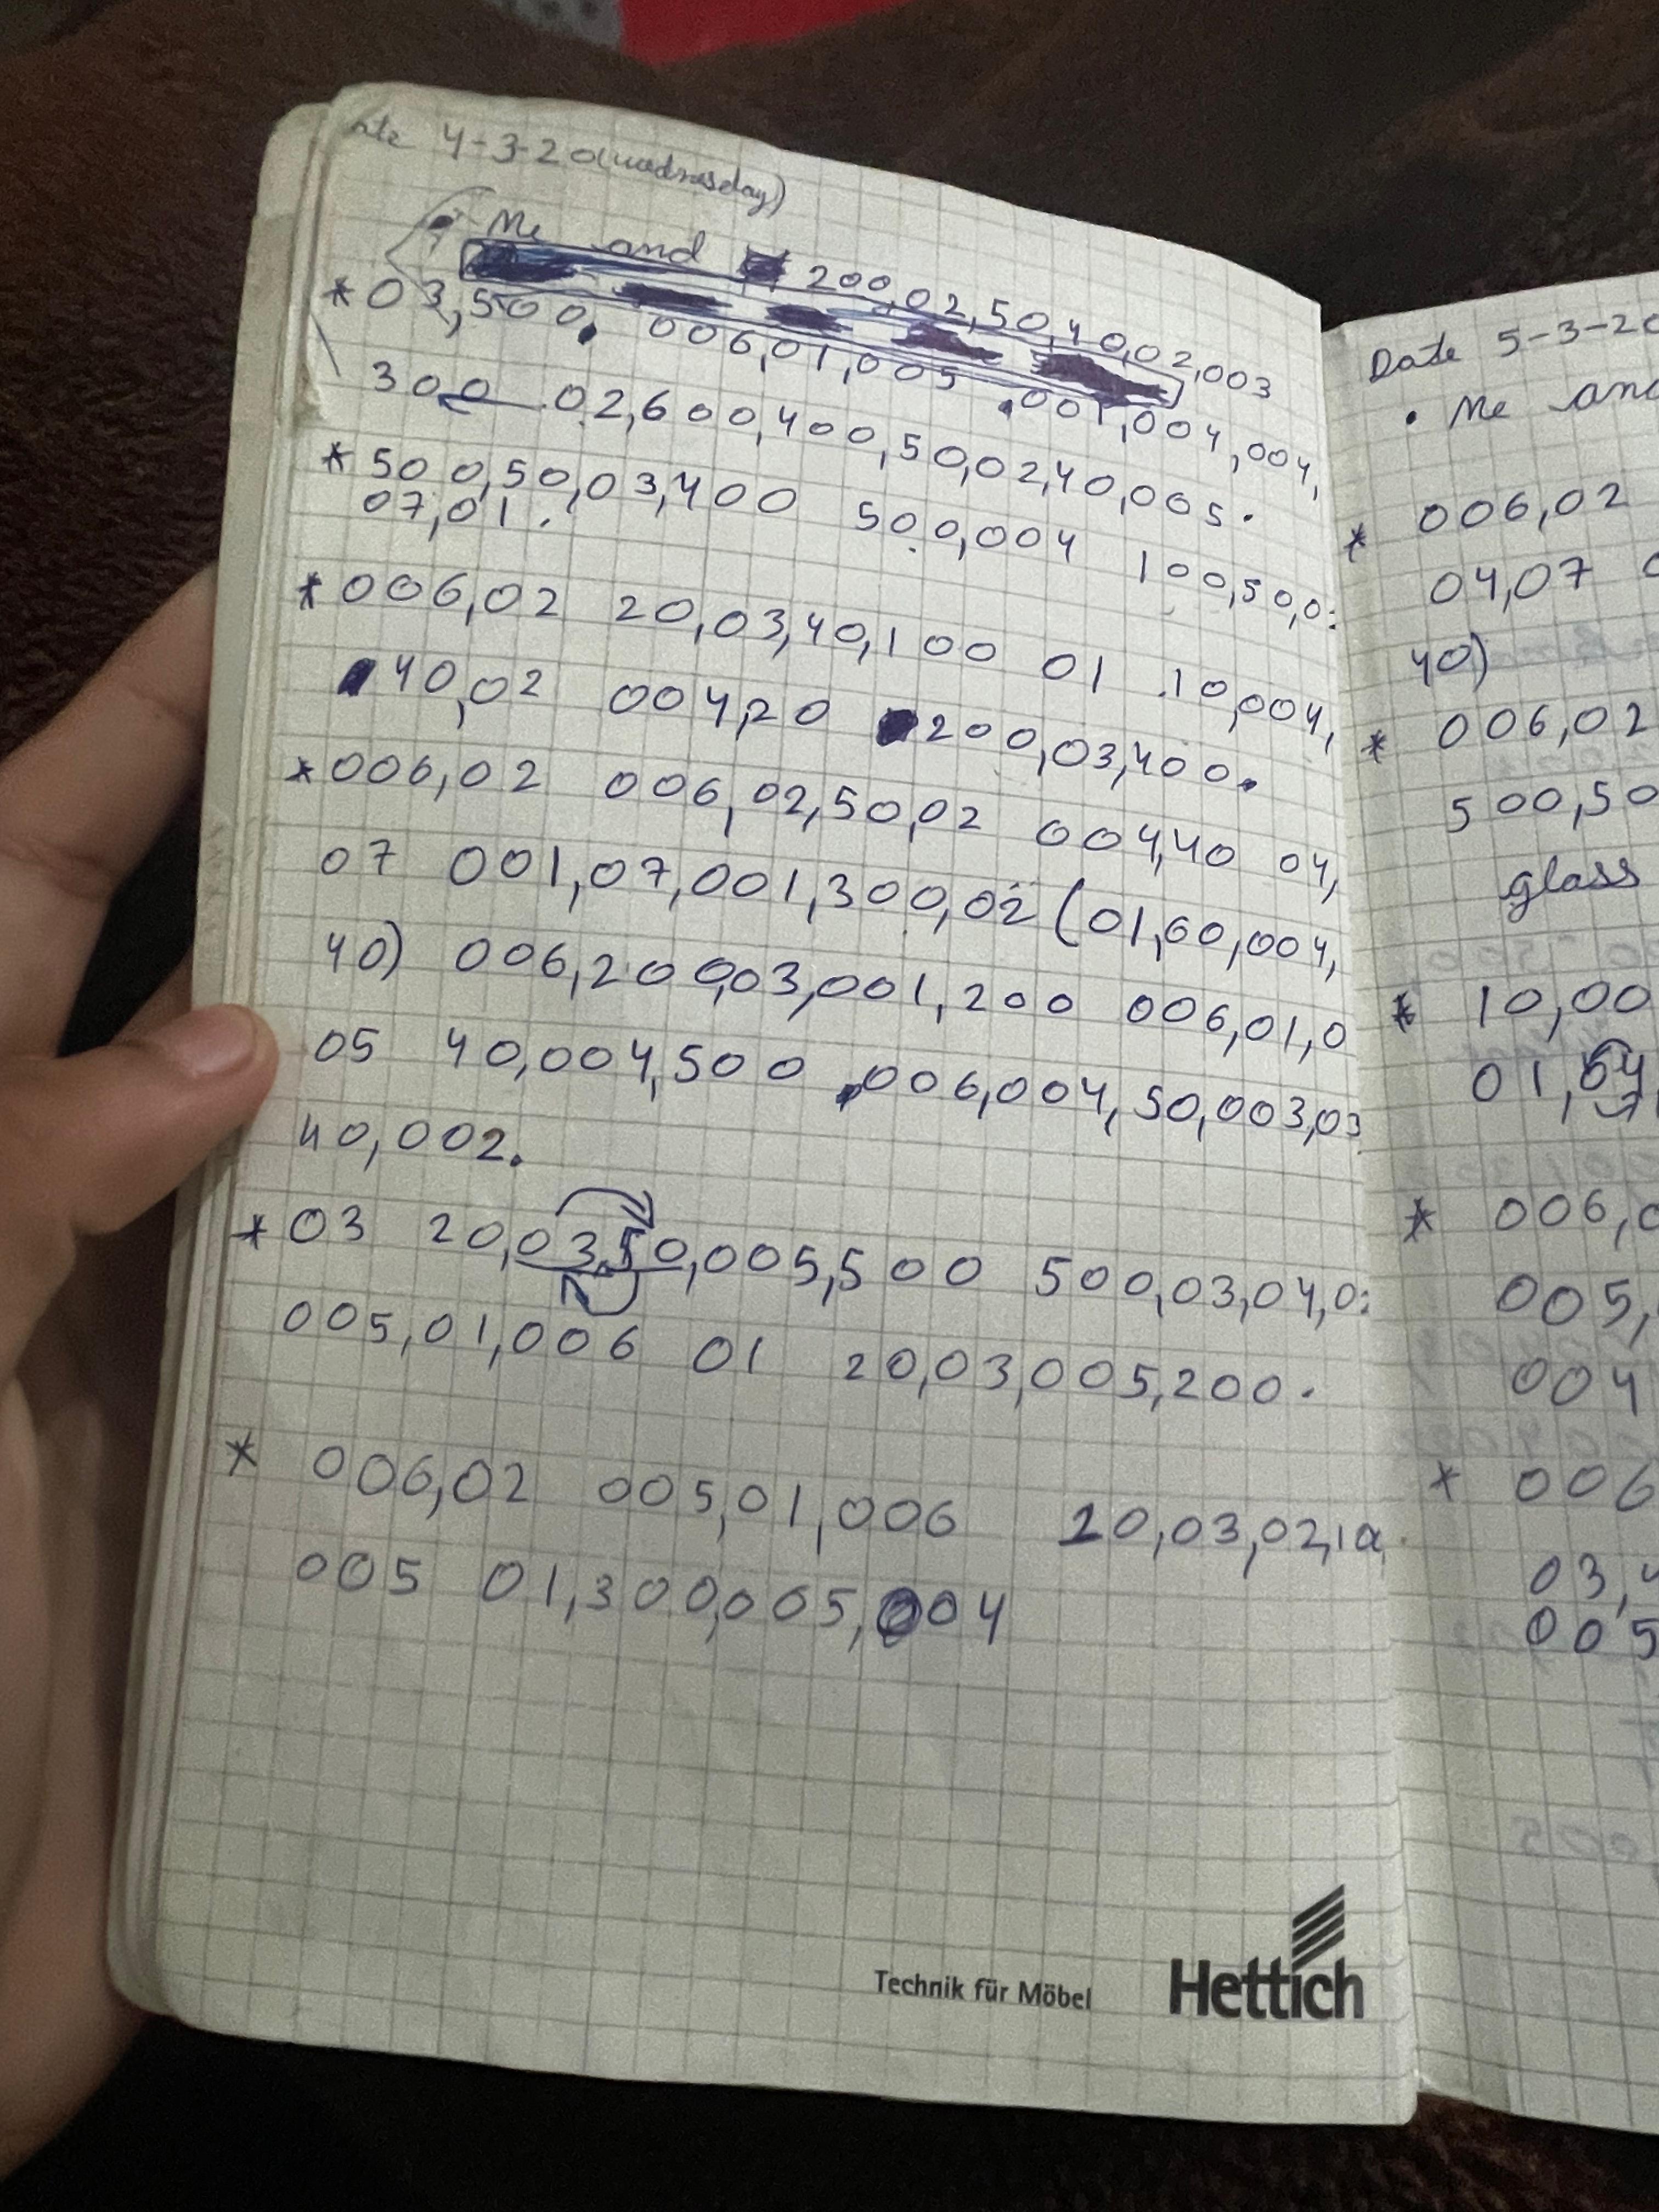 4-3-20(wednesday)
Me and 200,02,50,40,02,003
*03,500. 006,01,005 .001,004,004,
300 .02,600,400,50,02,40,005.
*500,50,03,400 500,004 100,50,0
07,01.
*006,02 20,03,40,100 01 .10,004,
40,02 004,20 200,03,400.
*006,02 006,02,50,02 004,40 04,
07 001,07,001,300,02 (01,60,004,
40) 006,200,03,001,200 006,01,0
05 40,004,500 006,004,50,003,03
40,002.
*03 20,03,50,005,500 500,03,04,0
005,01,006 01 20,03,005,200.
* 006,02 005,01,006 20,03,02,10
005 01,300,005,004
Technik für Möbel Hettich
Date 5-3-20
• Me and
* 006,02
04,07
40)
* 006,02
500,50
glass
* 10,00
01,
* 006,0
005,
004
* 006
03,
005